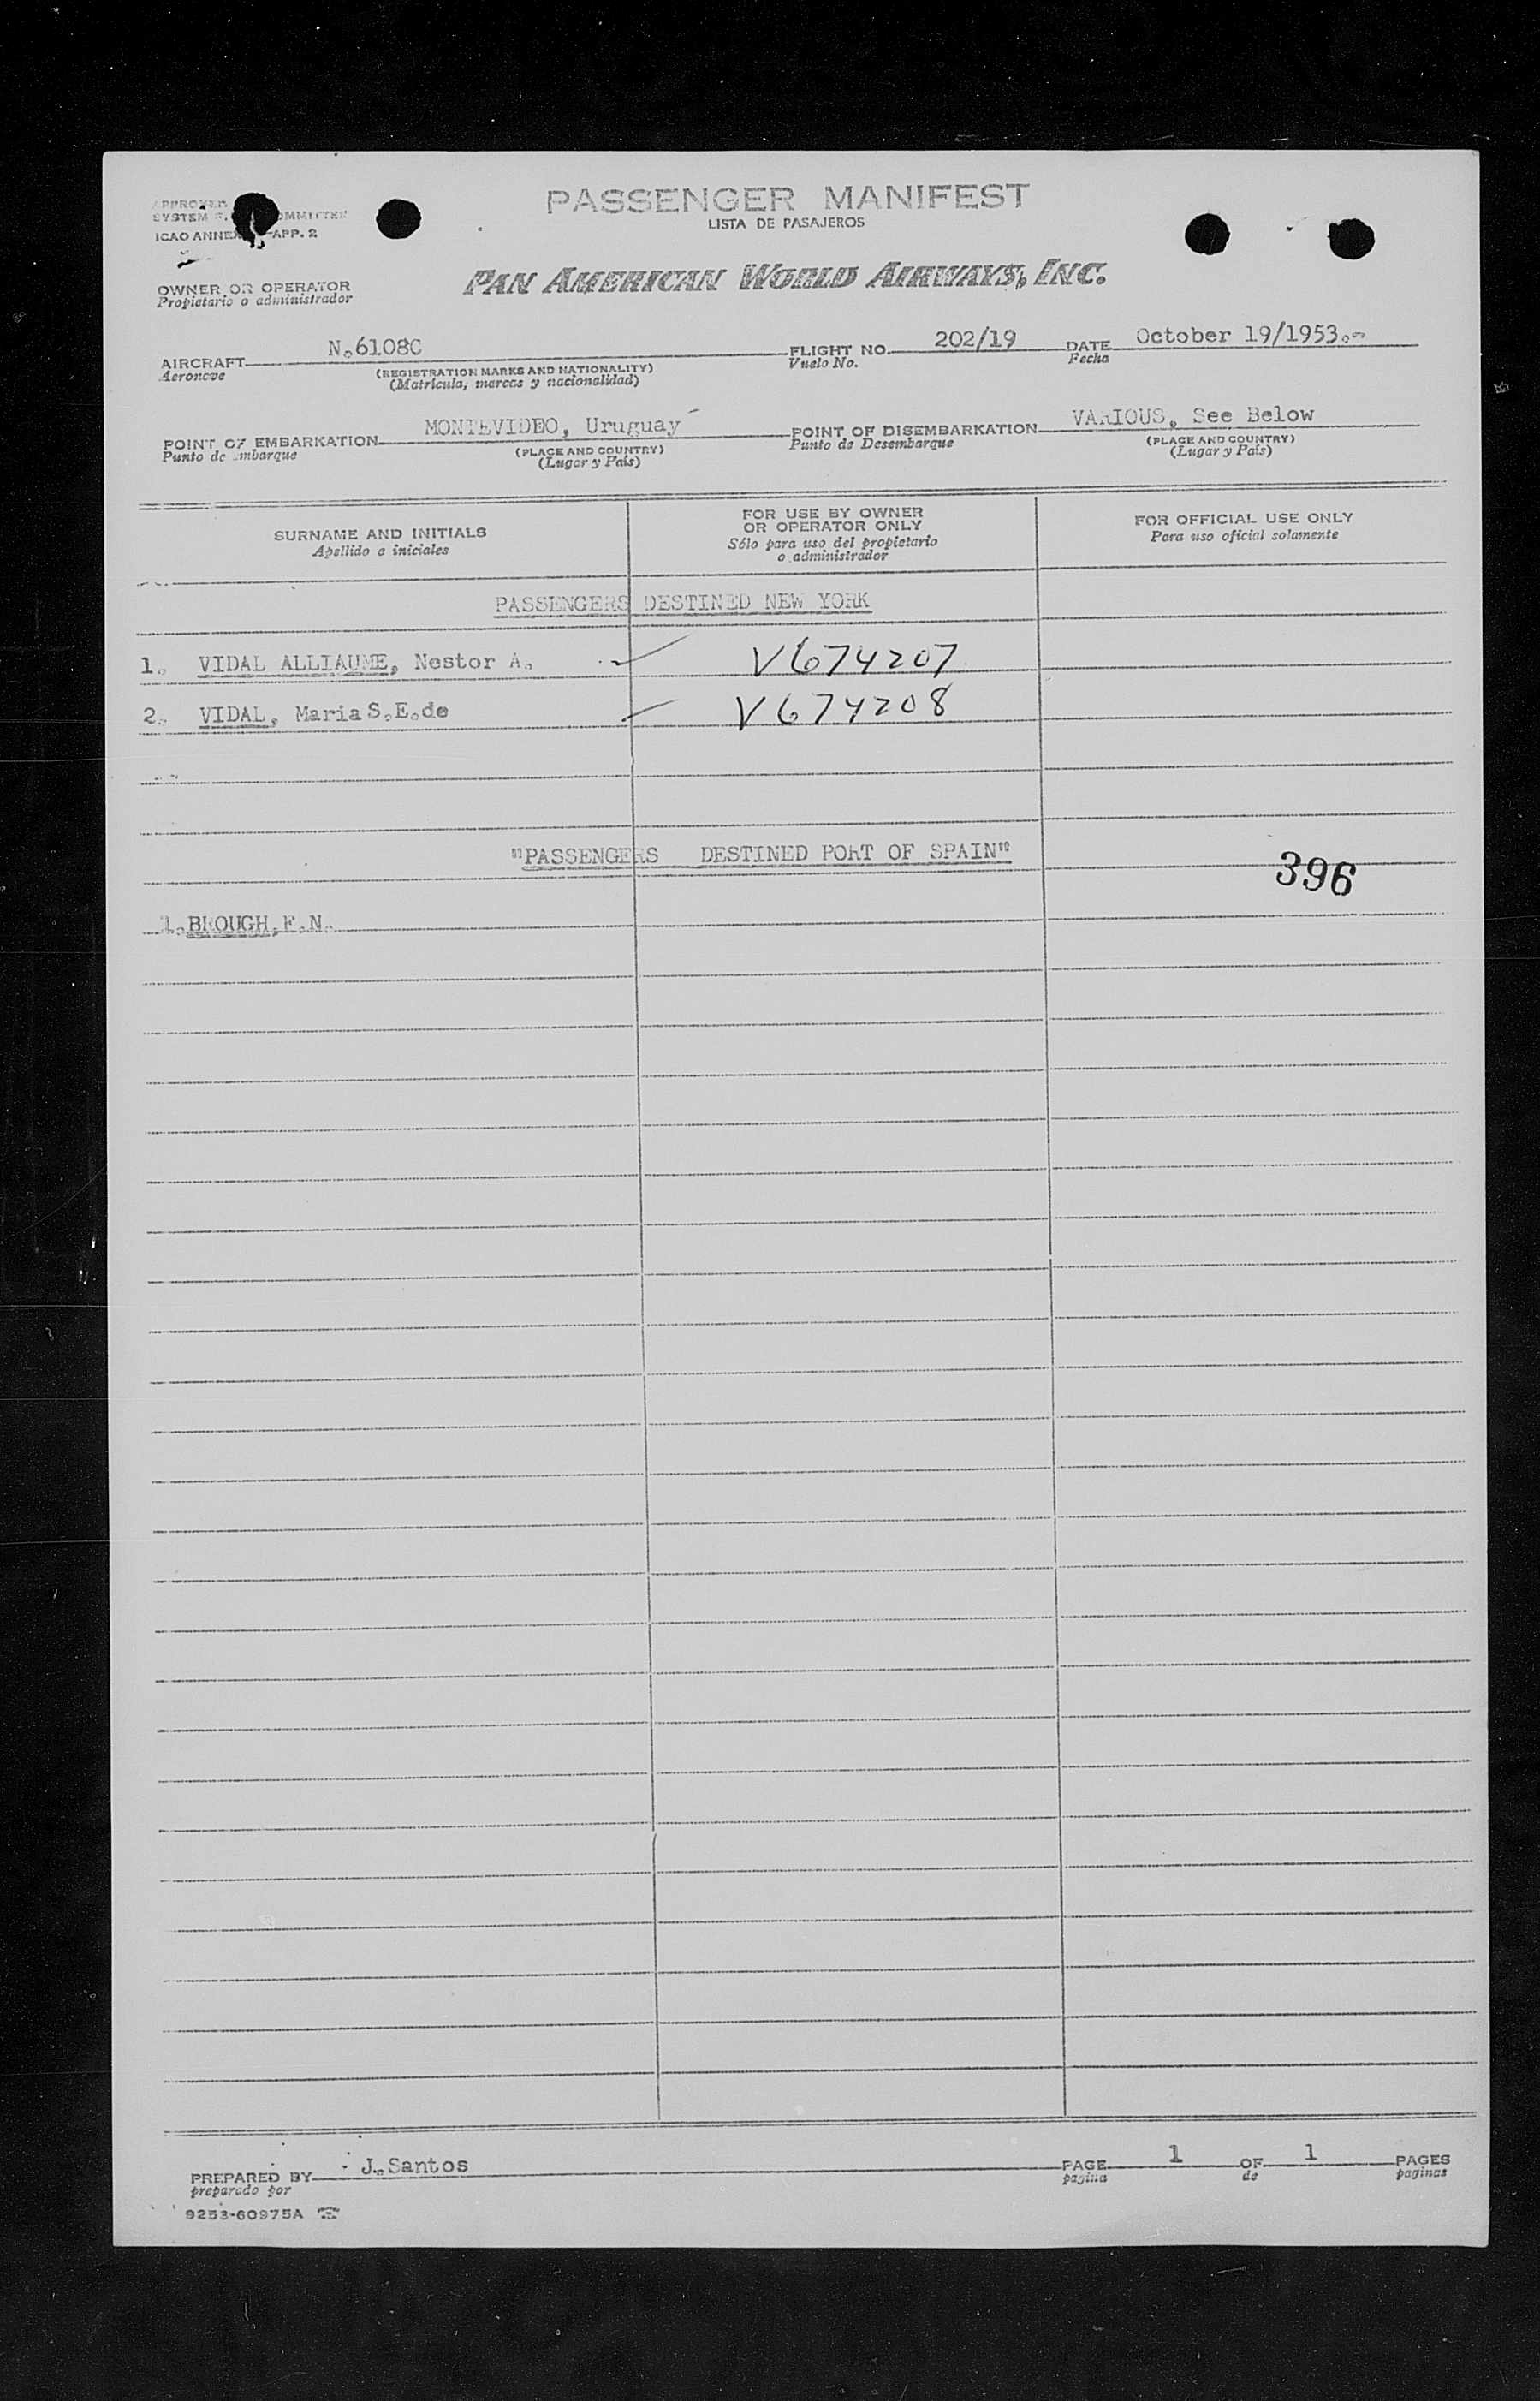 PASSENGER MANIFEST
LISTA DE PASAJEROS
APPROVED
SYSTEM COMMITTEE
ICAO ANNEX APP. 2
PAN AMERICAN WORLD AIRWAYS, INC.
OWNER OR OPERATOR
Propietario o administrador
AIRCRAFT N.6108C FLIGHT NO. 202/19 DATE October 19/1953.-
Aeronave (REGISTRATION MARKS AND NATIONALITY) Vuelo No. Fecha
(Matrícula, marcas y nacionalidad)
POINT OF EMBARKATION MONTEVIDEO, Uruguay POINT OF DISEMBARKATION VARIOUS, See Below
Punto de embarque (PLACE AND COUNTRY) Punto de Desembarque (PLACE AND COUNTRY)
(Lugar y País) (Lugar y País)
SURNAME AND INITIALS
Apellido e iniciales
FOR USE BY OWNER
OR OPERATOR ONLY
Sólo para uso del propietario
o administrador
FOR OFFICIAL USE ONLY
Para uso oficial solamente
PASSENGERS DESTINED NEW YORK
1. VIDAL ALLIAUME, Nestor A. V674207
2. VIDAL, Maria S.E.de V674208
"PASSENGERS DESTINED PORT OF SPAIN"
396
1. BLOUGH, F.N.
PREPARED BY J.Santos PAGE 1 OF 1 PAGES
preparado por pagina de paginas
9253-60975A